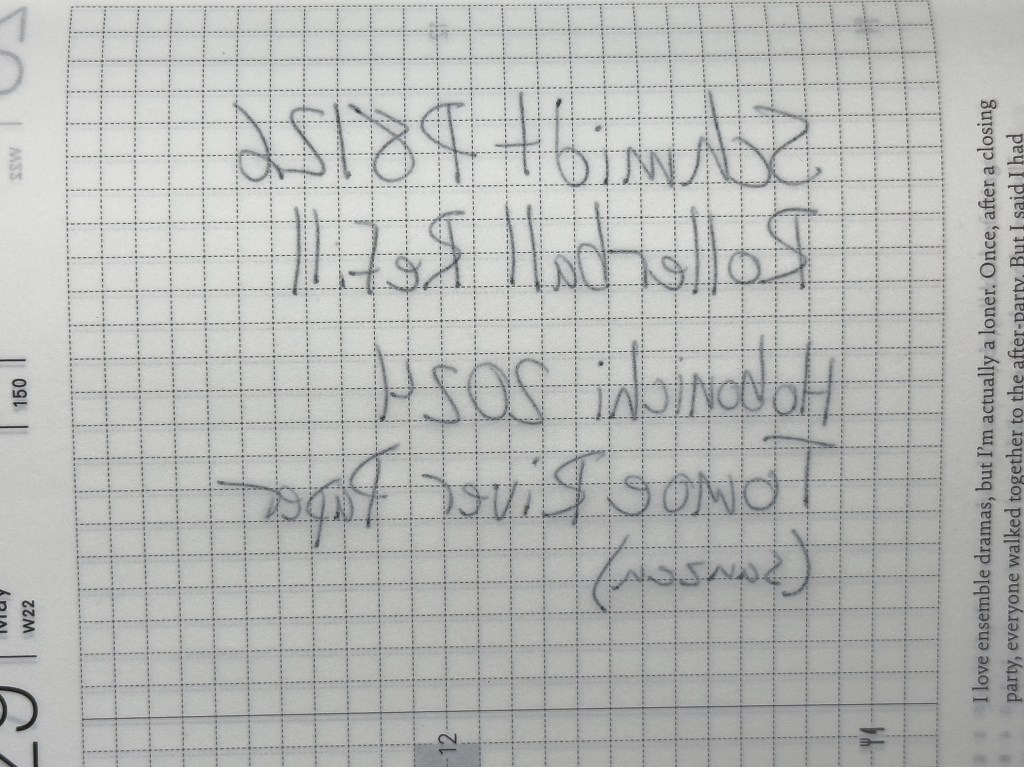 Schmidt P8126
Rollerball Refill
Hobonichi 2024
Tomoe River Paper
(sanzen)
I love ensemble dramas, but I'm actually a loner. Once, after a closing
party, everyone walked together to the after-party. But I said I had
29
May
W22
150
12
W22